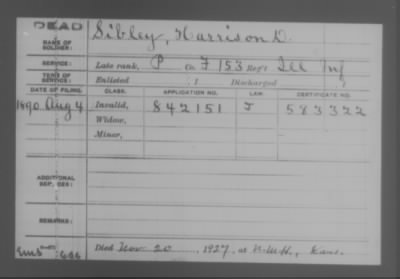 DEAD
NAME OF SOLDIER: Sibley, Harrison D.
SERVICE: Late rank, P Co. F 153 Reg't Ill Inf
TERM OF SERVICE: Enlisted 1 Discharged 1
DATE OF FILING. CLASS. APPLICATION NO. LAW. CERTIFICATE NO.
1890 Aug 4 Invalid, 842151 J 583322
Widow,
Minor,
ADDITIONAL SERVICES:
REMARKS:
Died Nov 20, 1927, at N.M.H., Kans.